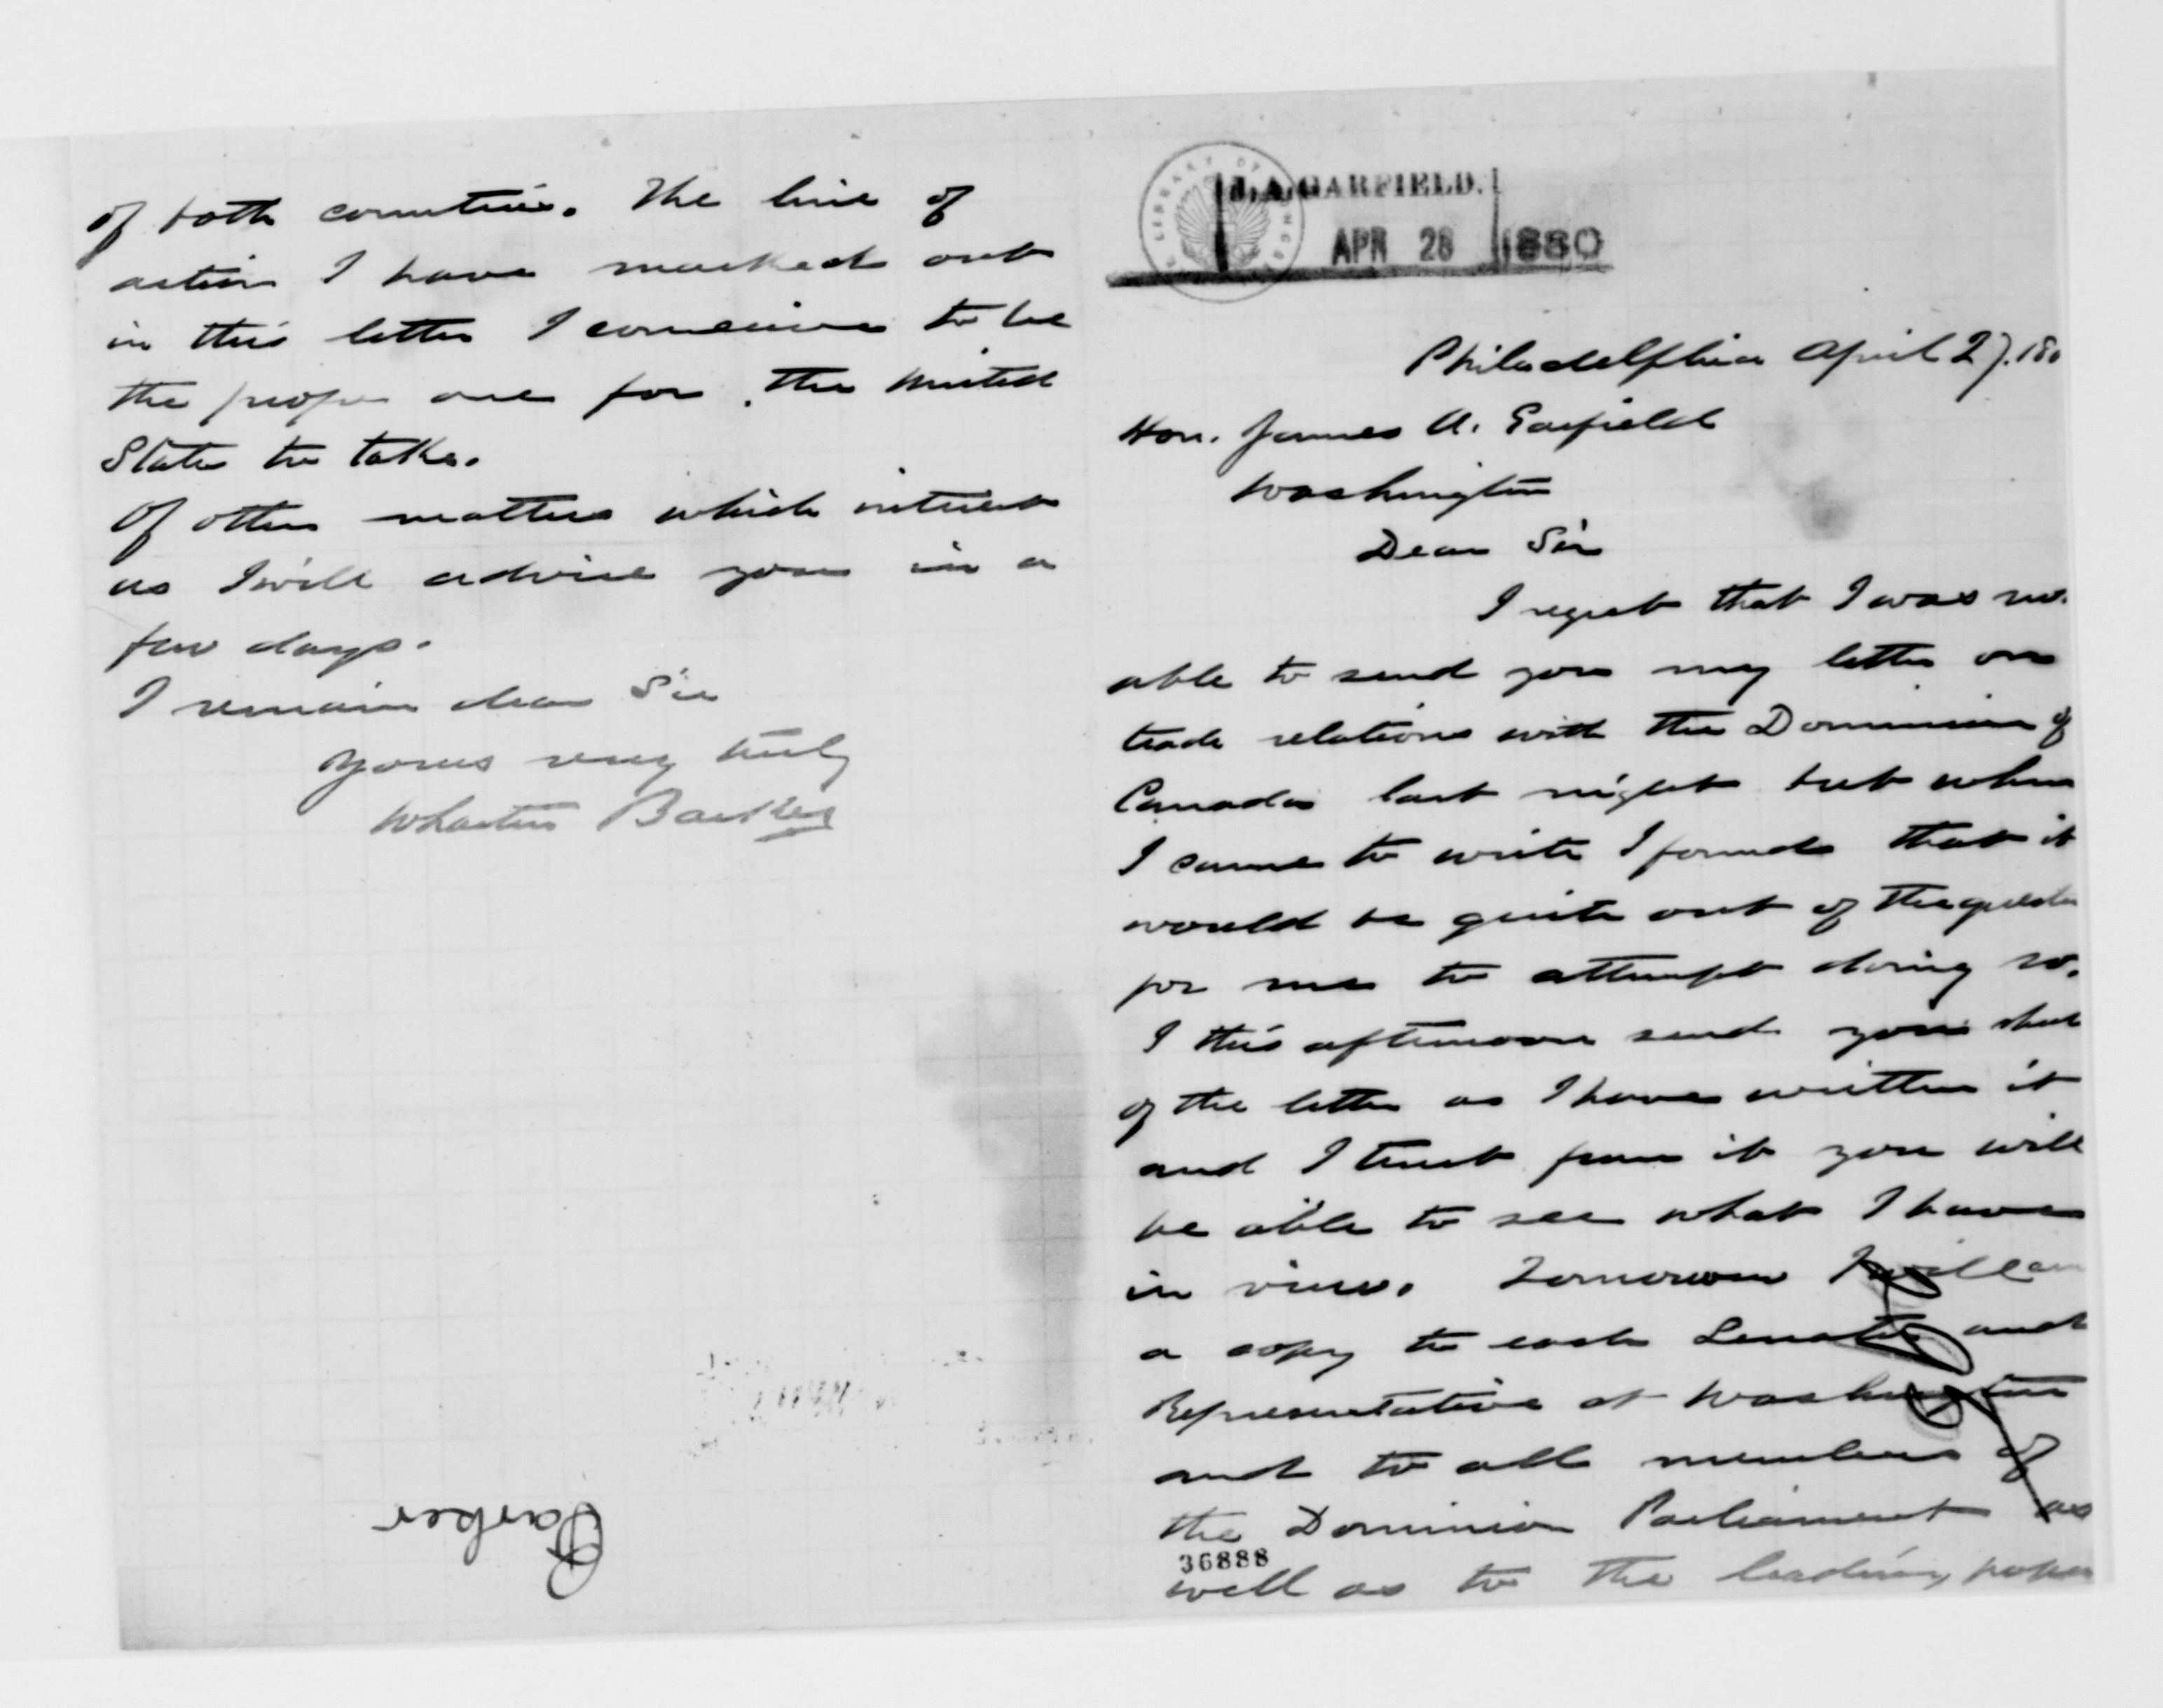 J. A. GARFIELD.
APR 28 1880
LIBRARY OF CONGRESS
Philadelphia April 27. 180
Hon. James A. Garfield
Washington
Dear Sir
I regret that I was no
able to send you my letter on
trade relations with the Dominion of
Canada last night but when
I came to write I found that it
would be quite out of the questi
for me to attempt doing so.
I this afternoon send you
of the letter as I have written it
and I trust from it you will
be able to see what I have
in view. Tomorrow I will
a copy to each Senator and
Representative at Washington
and to all members of
the Dominion Parliament as
36888
well as to the leading paper
of both countries. The line of
action I have marked out
in this letter I conceive to be
the proper one for the United
States to take.
Of other matters which interest
us I will advise you in a
few days.
I remain dear Sir
Yours very truly
Wharton Barker
Barker